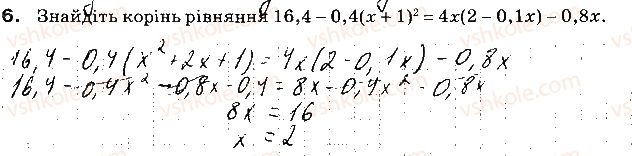 6. Знайдіть корінь рівняння 16,4 – 0,4(x + 1)² = 4x(2 – 0,1x) – 0,8x.
16,4 – 0,4(x² + 2x + 1) = 4x(2 – 0,1x) – 0,8x
16,4 – 0,4x² – 0,8x – 0,4 = 8x – 0,4x² – 0,8x
8x = 16
x = 2